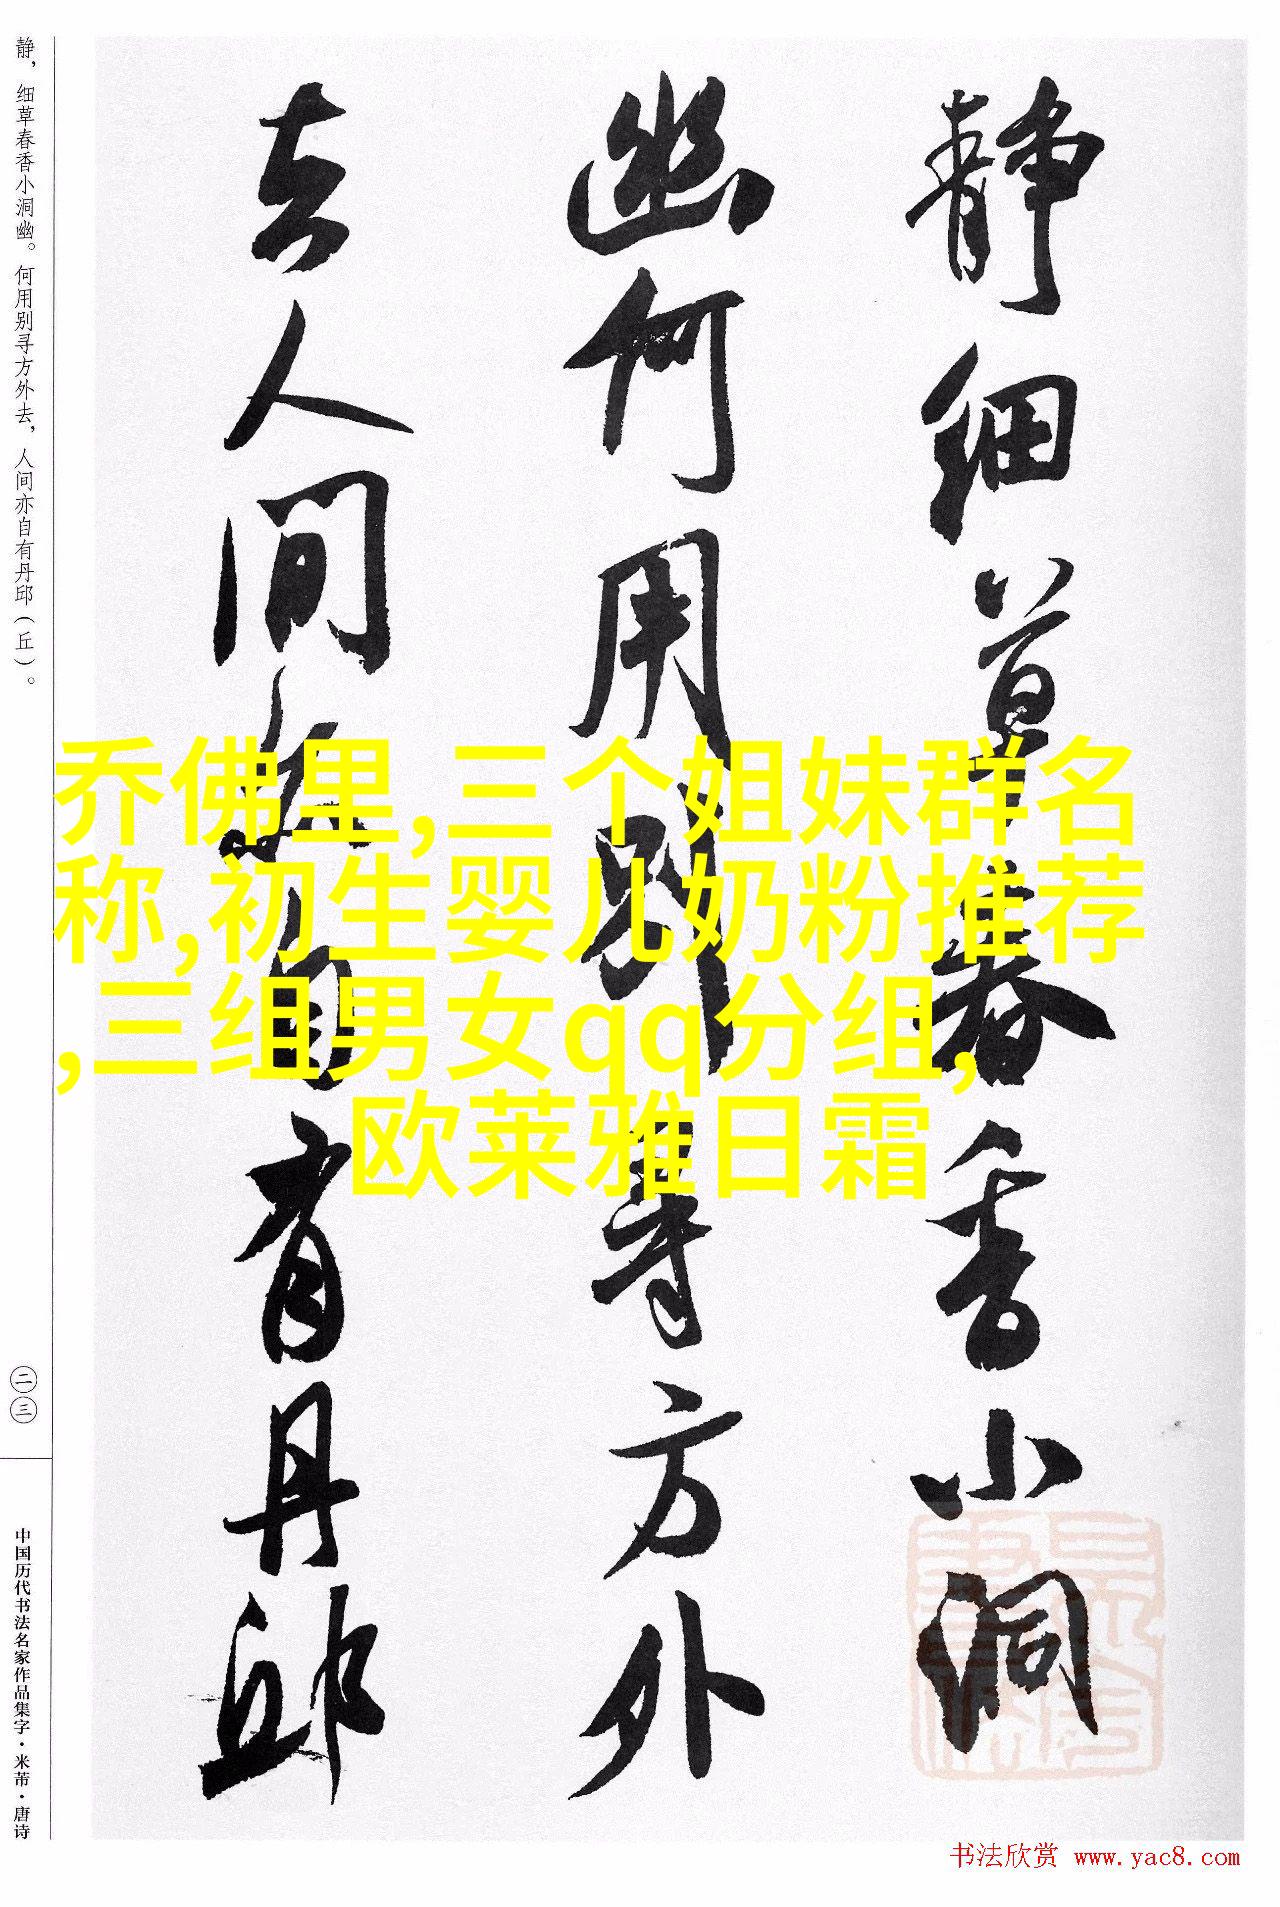 静细草春香小洞
幽何用别寻方外
去人间亦自有丹邱
静，细草春香小洞幽。何用别寻方外去，人间亦自有丹邱（丘）。
二三
中国历代书法名家作品集字·米芾·唐诗
乔佛里,三个姐妹群名
称,初生婴儿奶粉推荐
,三组男女qq分组,
欧莱雅日霜
书法欣赏 www.yac8.com